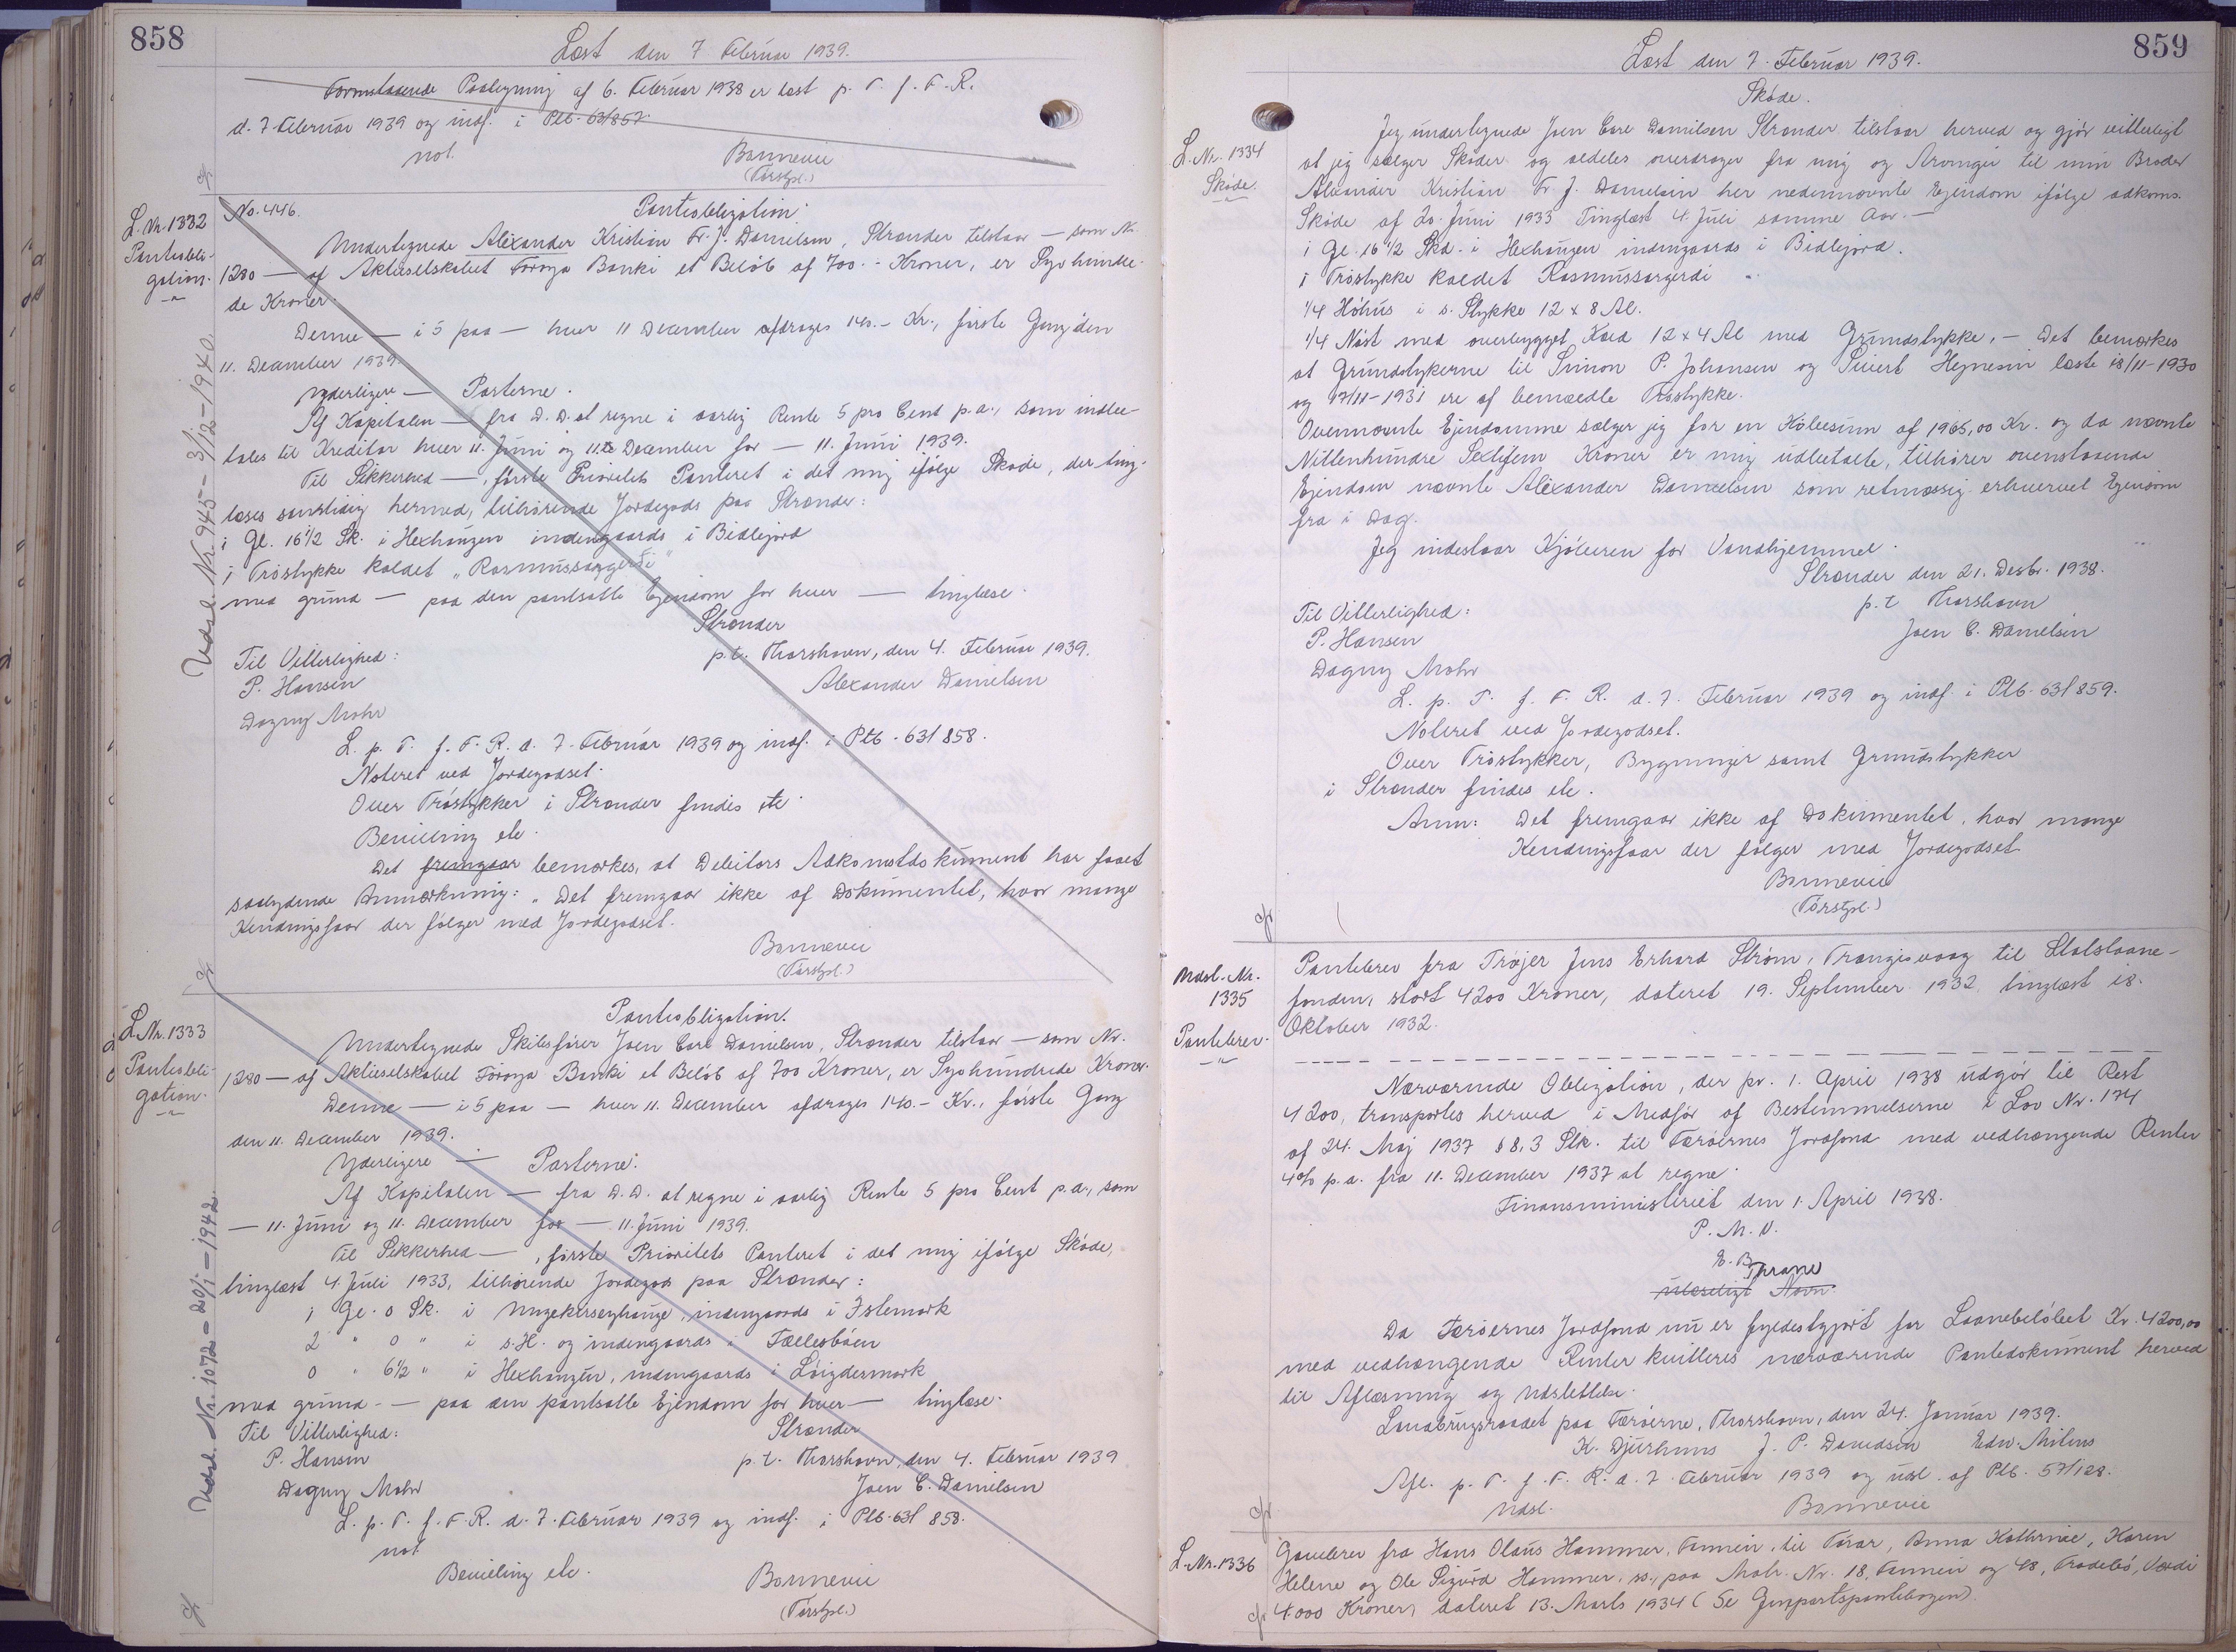 858
Læst den 7 Februar 1939.
Paategning af 6. Februar 1938 er læst p. T. f. F. R.
d. 7 Februar 1939 og indf. i Ptb. 63/857.
not.
Bonnevie
L. Nr. 1332
Panteobli-
gation.
No. 446.
Panteobligation.
Undertegnede Alexander Kristian Fr. J. Danielsen, Strænder tilstaar — som Nr.
1280 — af Aktieselskabet Føroya Banki et Beløb af 700.- Kroner, er Syvhundre-
de Kroner.
Denne — i 5 paa — hver 11 December afdrages 140.- Kr., første Gang den
11. December 1939.
Yderligere — Parterne.
Af Kapitalen — fra D.D. at regne i aarlig Rente 5 pro Cent p.a., som indbe-
tales til Kreditor hver 11. Juni og 11. December for — 11. Juni 1939.
Til Sikkerhed —, første Prioritets Panteret i det mig ifølge Skøde, der ting-
læses samtidig hermed, tilhørende Jordegods paa Strænder:
1 Gl. 16 1/2 Sk. i Hexhaugen indengaards i Bidlejord
1 Trøstykke kaldet "Rasmussargerdi"
med grund — paa den pantsatte Ejendom for hver — tinglæse.
Strænder
Til Vitterlighed:
p.t. Thorshavn, den 4. Februar 1939.
P. Hansen
Alexander Danielsen
Dagny Mohr
L. p. T. f. F. R. d. 7. Februar 1939 og indf. i Ptb. 63/858.
Noteret ved Jordegodset.
Over Trøstykker i Strænder findes etc.
Bevilling etc.
Det fremgaar bemærkes, at Debitors Adkomstdokument har faaet
saalydende Anmærkning: "Det fremgaar ikke af Dokumentet, hvor mange
Kendingsfaar der følger med Jordegodset.
Bonnevie
Udsl. Nr. 945 - 3/12 - 1940.
L. Nr. 1333
Panteobli-
gation.
Panteobligation.
Undertegnede Skibsfører Joen Carl Danielsen, Strænder tilstaar — som Nr.
1280 — af Aktieselskabet Føroya Banki et Beløb af 700 Kroner, er Syvhundrede Kroner.
Denne — i 5 paa — hver 11. December afdrages 140.- Kr., første Gang
den 11. December 1939.
Yderligere — Parterne.
Af Kapitalen — fra D.D. at regne i aarlig Rente 5 pro Cent p.a., som
— 11. Juni og 11. December for — 11. Juni 1939.
Til Sikkerhed —, første Prioritets Panteret i det mig ifølge Skøde,
tinglæst 4. Juli 1933, tilhørende Jordegods paa Strænder:
1 Gl. 0 Sk. i indengaards i Istemark
2 " 0 " i s.H. og indengaards i Fællesbøen
0 " 6 1/2 " i Hexhaugen, indengaards i
med grund — paa den pantsatte Ejendom for hver — tinglæse.
Til Vitterlighed:
Strænder
P. Hansen
p.t. Thorshavn, den 4. Februar 1939
Dagny Mohr
Joen C. Danielsen
L. p. T. f. F. R. d. 7. Februar 1939 og indf. i Ptb. 63/858.
not.
Bevilling etc.
Bonnevie
Udsl. Nr. 1072 - 20/1 - 1942.
859
Læst den 7. Februar 1939.
L. Nr. 1334
Skøde.
Skøde.
Jeg undertegnede Joen Carl Danielsen Strænder tilstaar herved og gjør vitterligt
at jeg sælger Skøder og aldeles overdrager fra mig og Arvinger til min Broder
Alexander Kristian Fr. J. Danielsen her nedennævnte Ejendom ifølge adkoms.
Skøde af 20. Juni 1933 Tinglæst 4. Juli samme Aar. —
1 Gl. 16 1/2 Skd. i Hexhaugen indengaards i Bidlejord.
1 Trøstykke kaldet Rasmussargerdi "
1/4 Høhus i s. Stykke 12 x 8 Al.
1/4 Nøst med overbygget 12 x 4 Al med Grundstykke. — Det bemærkes
at Grundstykerne til Simon P. Johansen og Sivert Heynesen læste 18/11-1930
og 17/11-1931 ere af bemældte Trøstykke.
Ovennævnte Ejendomme sælger jeg for en Købesum af 1965,00 Kr. og da nævnte
Nittenhundre Sextifem Kroner er mig udbetalte, tilhører ovenstaaende
Ejendom nævnte Alexander Danielsen som retmæssig erhvervet Ejendom
fra i Dag.
Jeg indestaar Kjøberen for Vandhjemmel.
Strænder den 21. Desbr. 1938.
Til Vitterlighed:
p.t. Thorshavn
P. Hansen
Joen C. Danielsen
Dagny Mohr
L. p. T. f. F. R. d. 7. Februar 1939 og indf. i Ptb. 63/859.
Noteret ved Jordegodset.
Over Trøstykker, Bygninger samt Grundstykker
i Strænder findes etc.
Anm: Det fremgaar ikke af Dokumentet, hvor mange
Kendingsfaar der følger med Jordegodset
Bonnevie
Udsl. Nr.
1335
Pantebrev.
Pantebrev fra Jens Erhard Strøm, Trangisvaag til Statslaane-
fonden, stort 4200 Kroner, dateret 19. September 1932, tinglæst 18.
Oktober 1932.
Nærværende Obligation, der pr. 1. April 1938 udgør til Rest
4200, transportes herved i Medfør af Bestemmelserne i Lov Nr. 174
af 24. Maj 1937 § 8, 3 Stk. til Færøernes Jordfond med vedhængende Renter
4% p.a. fra 11. December 1937 at regne.
Finansministeriet den 1. April 1938.
P. M. V.
E. B.
Thrane
ulæseligt Navn.
Da Færøernes Jordfond nu er fyldestgjort for Laanebeløbet Kr. 4200,00
med vedhængende Renter kvitteres nærværende Pantedokument herved
til Aflæsning og Udslettelse.
Landbrugsraadet paa Færøerne, Thorshavn, den 24. Januar 1939.
K. Djurhuus J. P. Davidsen Edw. Mitens
Afl. p. T. f. F. R. d. 7. Februar 1939 og usl. af Ptb. 57/128.
Udsl.
Bonnevie
L. Nr. 1336
Gavebrev fra Hans Olaus Hammer, Famien, til Anna Kathrine, Karen
Helene og Ole Sigurd Hammer, ss., paa Matr. Nr. 18, Famien og 48, Frodebø, Værdi
4.000 Kroner, dateret 13. Marts 1934 (Se Genpartspantebogen).